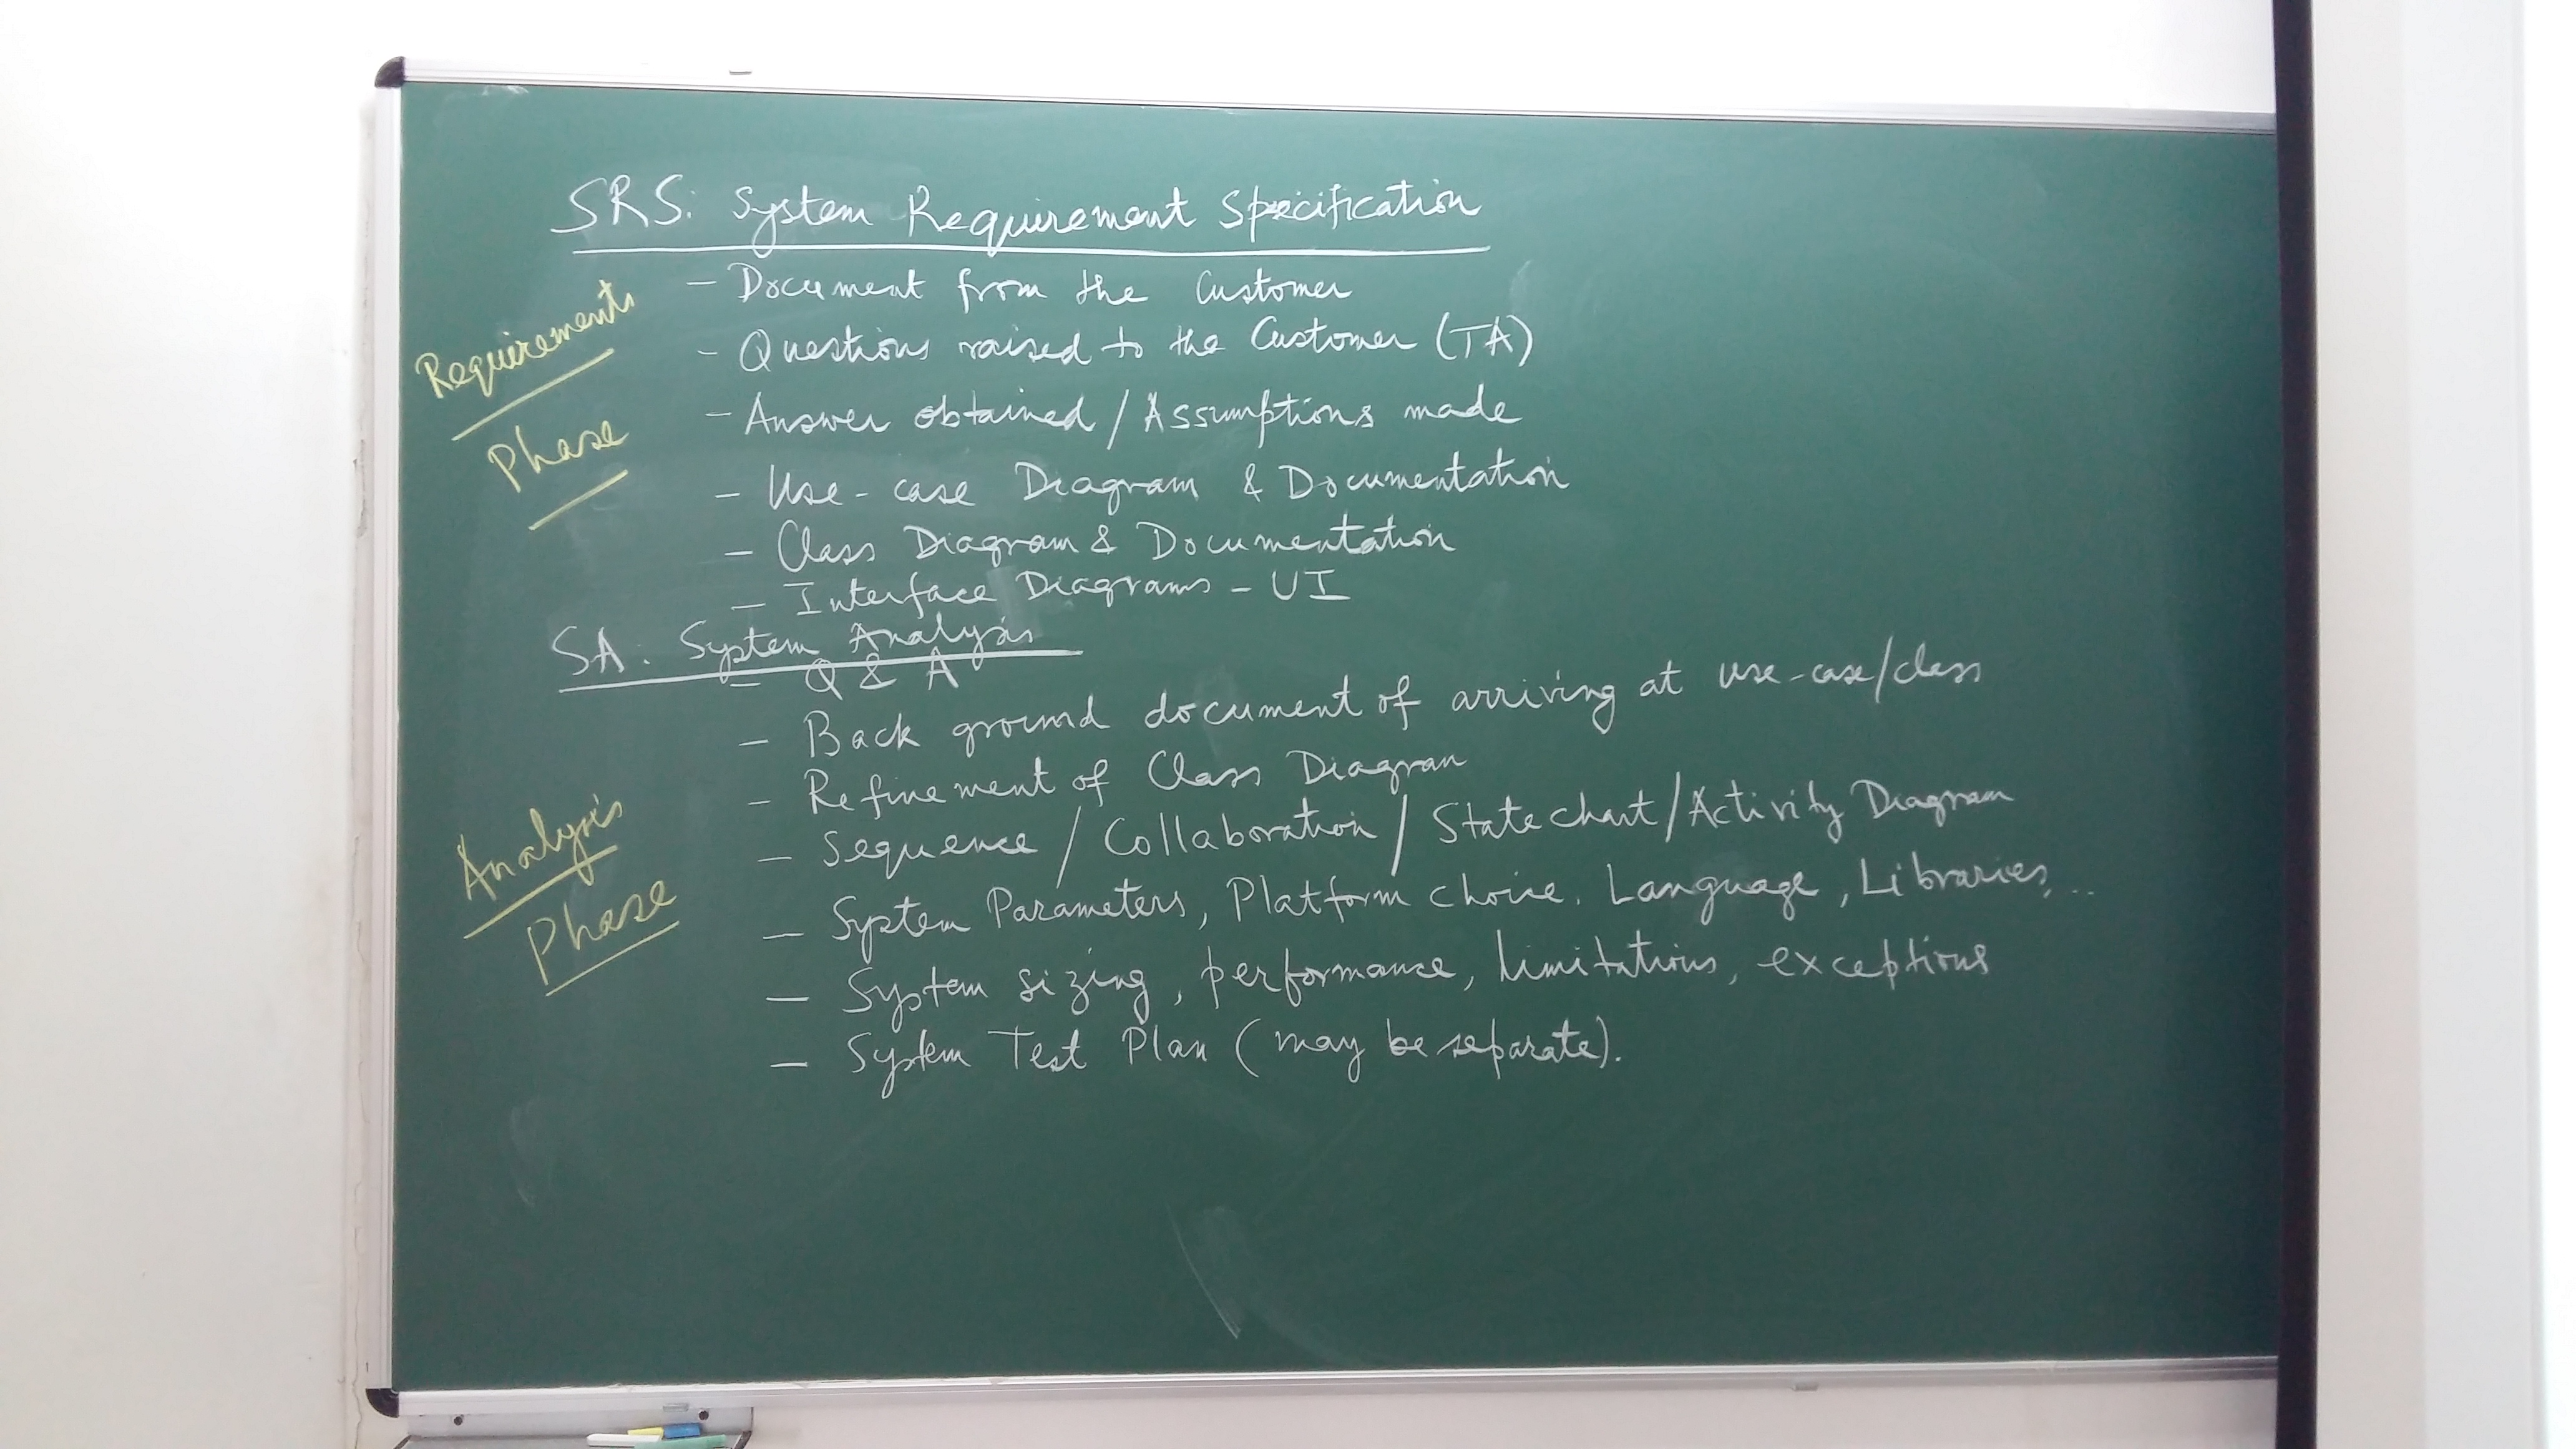 SRS: System Requirement Specification
- Document from the Customer
- Questions raised to the Customer (TA)
- Answer obtained / Assumptions made
- Use-case Diagram & Documentation
- Class Diagram & Documentation
- Interface Diagrams - UI
Requirements
Phase
SA. System Analysis
- Q & A
- Back ground document of arriving at use-case/class
- Refinement of Class Diagram
- Sequence / Collaboration / Statechart / Activity Diagram
- System Parameters, Platform choice. Language, Libraries, ..
- System sizing, performance, limitations, exceptions
- System Test Plan (may be separate).
Analysis
Phase